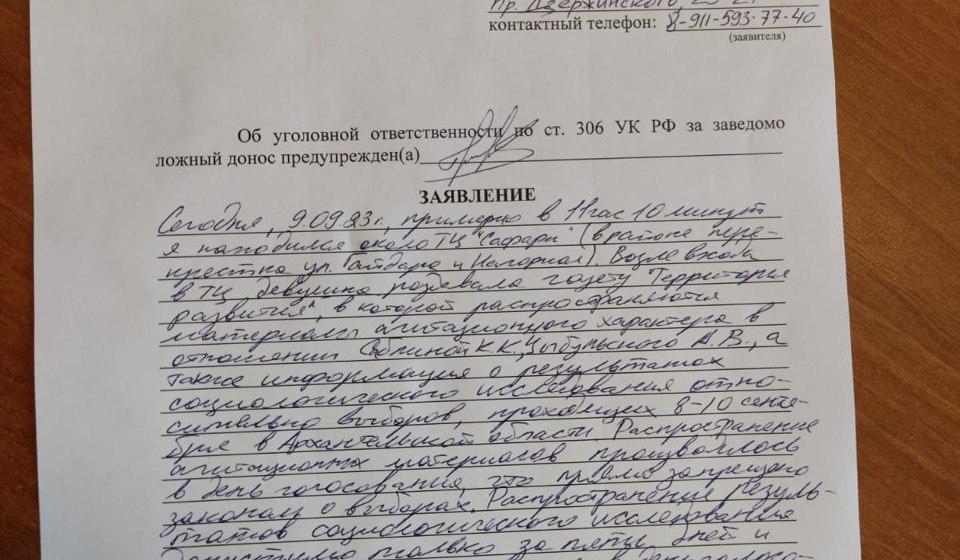 пр. Дзержинского
контактный телефон: 8-911-593-77-40
(заявителя)
Об уголовной ответственности по ст. 306 УК РФ за заведомо
ложный донос предупрежден(а)
ЗАЯВЛЕНИЕ
Сегодня, 9.09.23 г., примерно в 11 час 10 минут
я находился около ТЦ "Сафари" (в районе пере-
крестка ул. Гайдара и Нагорная). Возле входа
в ТЦ девушка раздавала газету "Территория
развития", в которой распространяются
материалы агитационного характера в
отношении К.К., Цыбульского А.В., а
также информация о результатах
социологического исследования отно-
сительно выборов, проходящих 8-10 сентя-
бря в Архангельской области. Распространение
агитационных материалов производилось
в день голосования, что прямо запрещено
законом о выборах. Распространение резуль-
татов социологического исследования
допустимо только за пять дней и